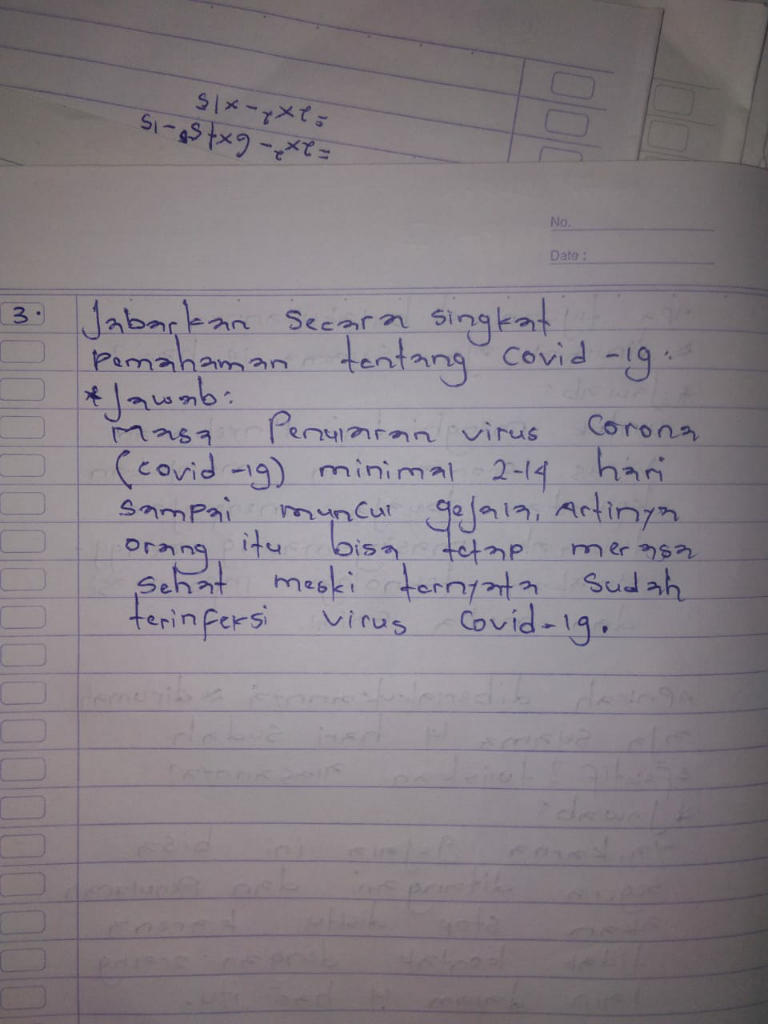 = 2x² - x 15
= 2x² - 6x + 5 - 15
No.
Date :
3.
Jabarkan secara singkat
Pemahaman tentang covid -19.
* Jawab:
Masa Penularan virus Corona
(covid -19) minimal 2-14 hari
sampai muncul gejala, Artinya
orang itu bisa tetap merasa
sehat meski ternyata sudah
terinfeksi virus Covid-19.